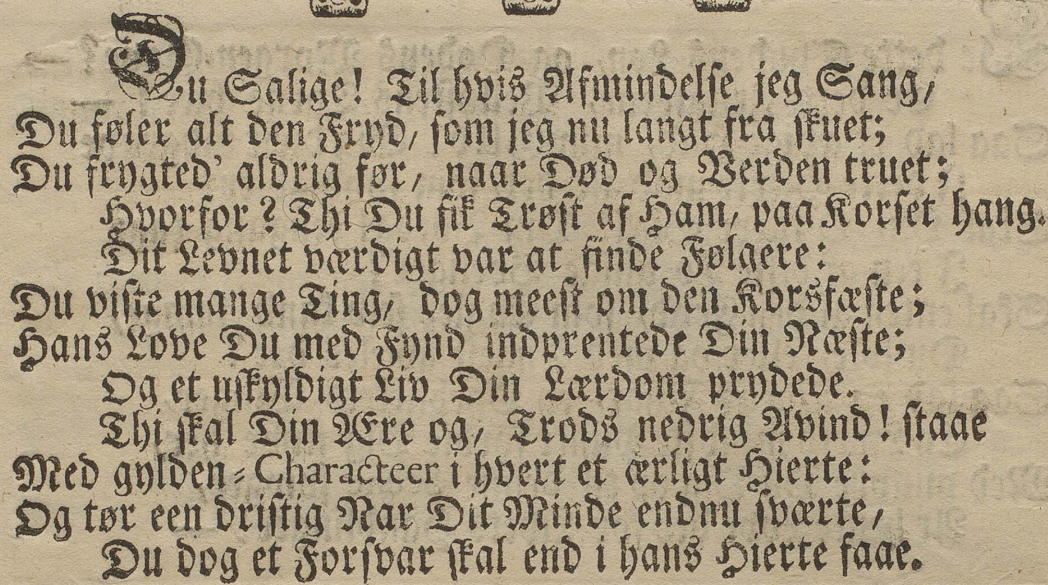 Du Salige! Til hvis Afmindelse jeg Sang,
Du føler alt den Fryd, som jeg nu langt fra skuet;
Du frygted' aldrig før, naar Død og Verden truet;
Hvorfor? Thi Du fik Trøst af Ham, paa Korset hang.
Dit Levnet værdigt var at finde Følgere:
Du viste mange Ting, dog meest om den Korsfæste;
Hans Love Du med Fynd indprentede Din Næste;
Og et uskyldigt Liv Din Lærdom prydede.
Thi skal Din Ære og, Trods nedrig Avind! staae
Med gylden-Characteer i hvert et ærligt Hierte:
Og tør een dristig Nar Dit Minde endnu sværte,
Du dog et Forsvar skal end i hans Hierte faae.